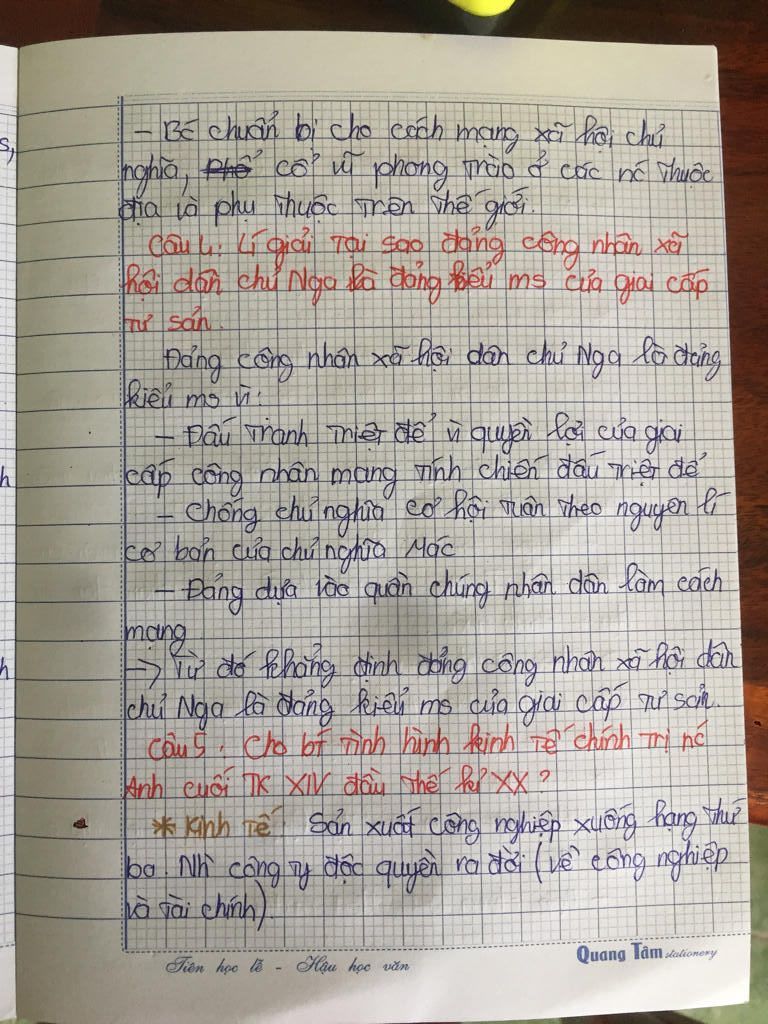 s,
h
h
- Bé chuẩn bị cho cách mạng xã hội chủ
nghĩa, cổ vũ phong trào ở các nc thuộc
địa và phụ thuộc trên thế giới.
Câu 4: Lí giải tại sao đảng công nhân xã
hội dân chủ Nga là đảng kiểu ms của giai cấp
tư sản.
Đảng công nhân xã hội dân chủ Nga là đảng
kiểu ms vì:
- Đấu tranh triệt để vì quyền lợi của giai
cấp công nhân mang tính chiến đấu triệt để
- Chống chủ nghĩa cơ hội tuân theo nguyên lí
cơ bản của chủ nghĩa Mác
- Đảng dựa vào quần chúng nhân dân làm cách
mạng
→ Từ đó khẳng định đảng công nhân xã hội dân
chủ Nga là đảng kiểu ms của giai cấp tư sản.
Câu 5: Cho bt tình hình kinh tế chính trị nc
Anh cuối TK XIV đầu thế kỉ XX?
* Kinh tế: Sản xuất công nghiệp xuống hạng thứ
ba. Nh` công ty độc quyền ra đời (về công nghiệp
và tài chính).
Tiên học lễ - Hậu học văn
Quang Tâm stationery